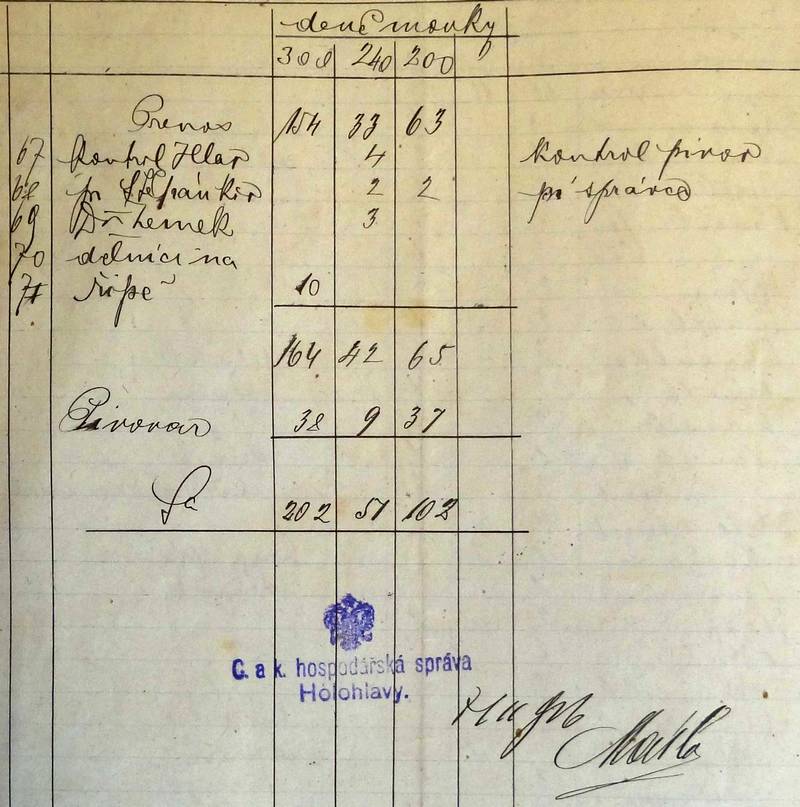 denně mouky
300 240 200
Prenos 154 33 63
67 Kontrol Hlav 4 Kontrol pivov
68 pí Štěpánkov 2 2 pí správce
69 Držemek 3
70 dělníci na
71 řípě 10
164 42 65
Pivovar 38 9 37
Sa 202 51 102
C. a k. hospodářská správa
Holohlavy.